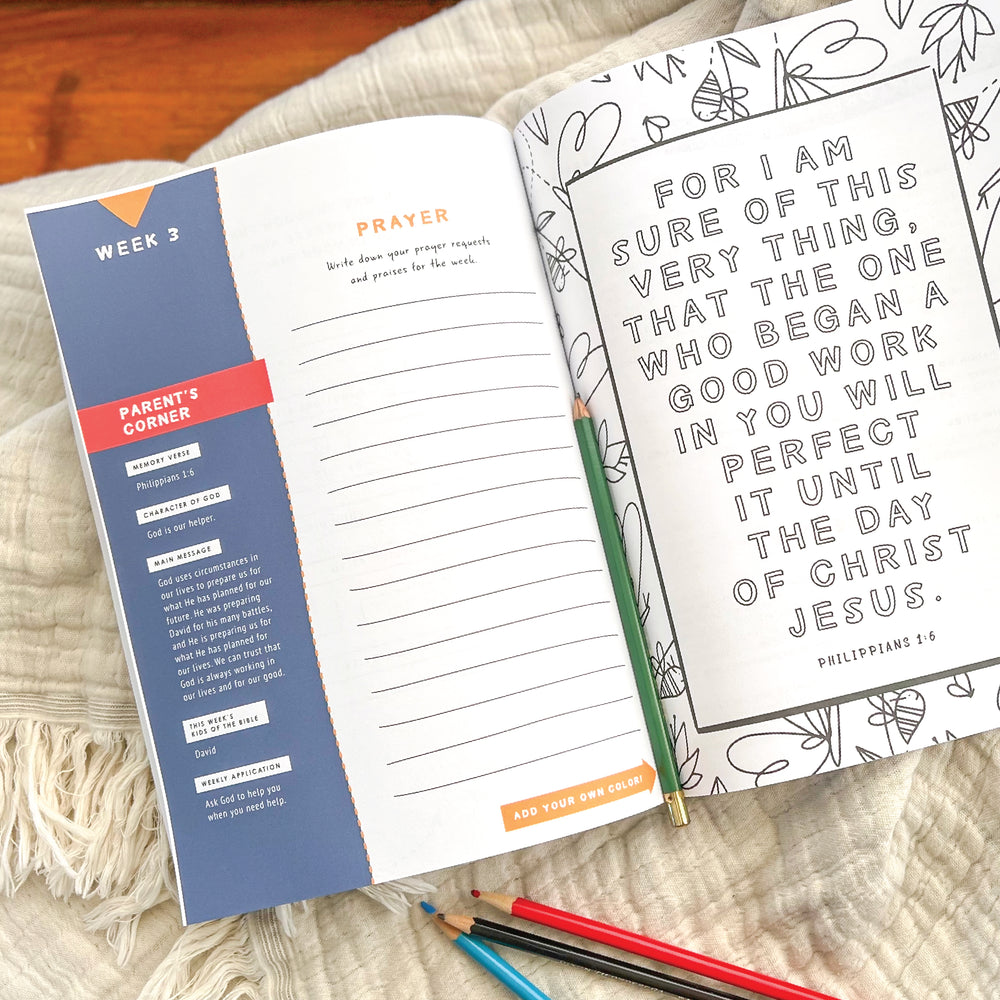 WEEK 3
PARENT'S
CORNER
MEMORY VERSE
Philippians 1:6
CHARACTER OF GOD
God is our helper.
MAIN MESSAGE
God uses circumstances in
our lives to prepare us for
what He has planned for our
future. He was preparing
David for his many battles,
and He is preparing us for
what He has planned for
our lives. We can trust that
God is always working in
our lives and for our good.
THIS WEEK'S
KIDS OF THE BIBLE
David
WEEKLY APPLICATION
Ask God to help you
when you need help.
PRAYER
Write down your prayer requests
and praises for the week.
ADD YOUR OWN COLOR!
FOR I AM
SURE OF THIS
VERY THING,
THAT THE ONE
WHO BEGAN A
GOOD WORK
IN YOU WILL
PERFECT
IT UNTIL
THE DAY
OF CHRIST
JESUS.
PHILIPPIANS 1:6